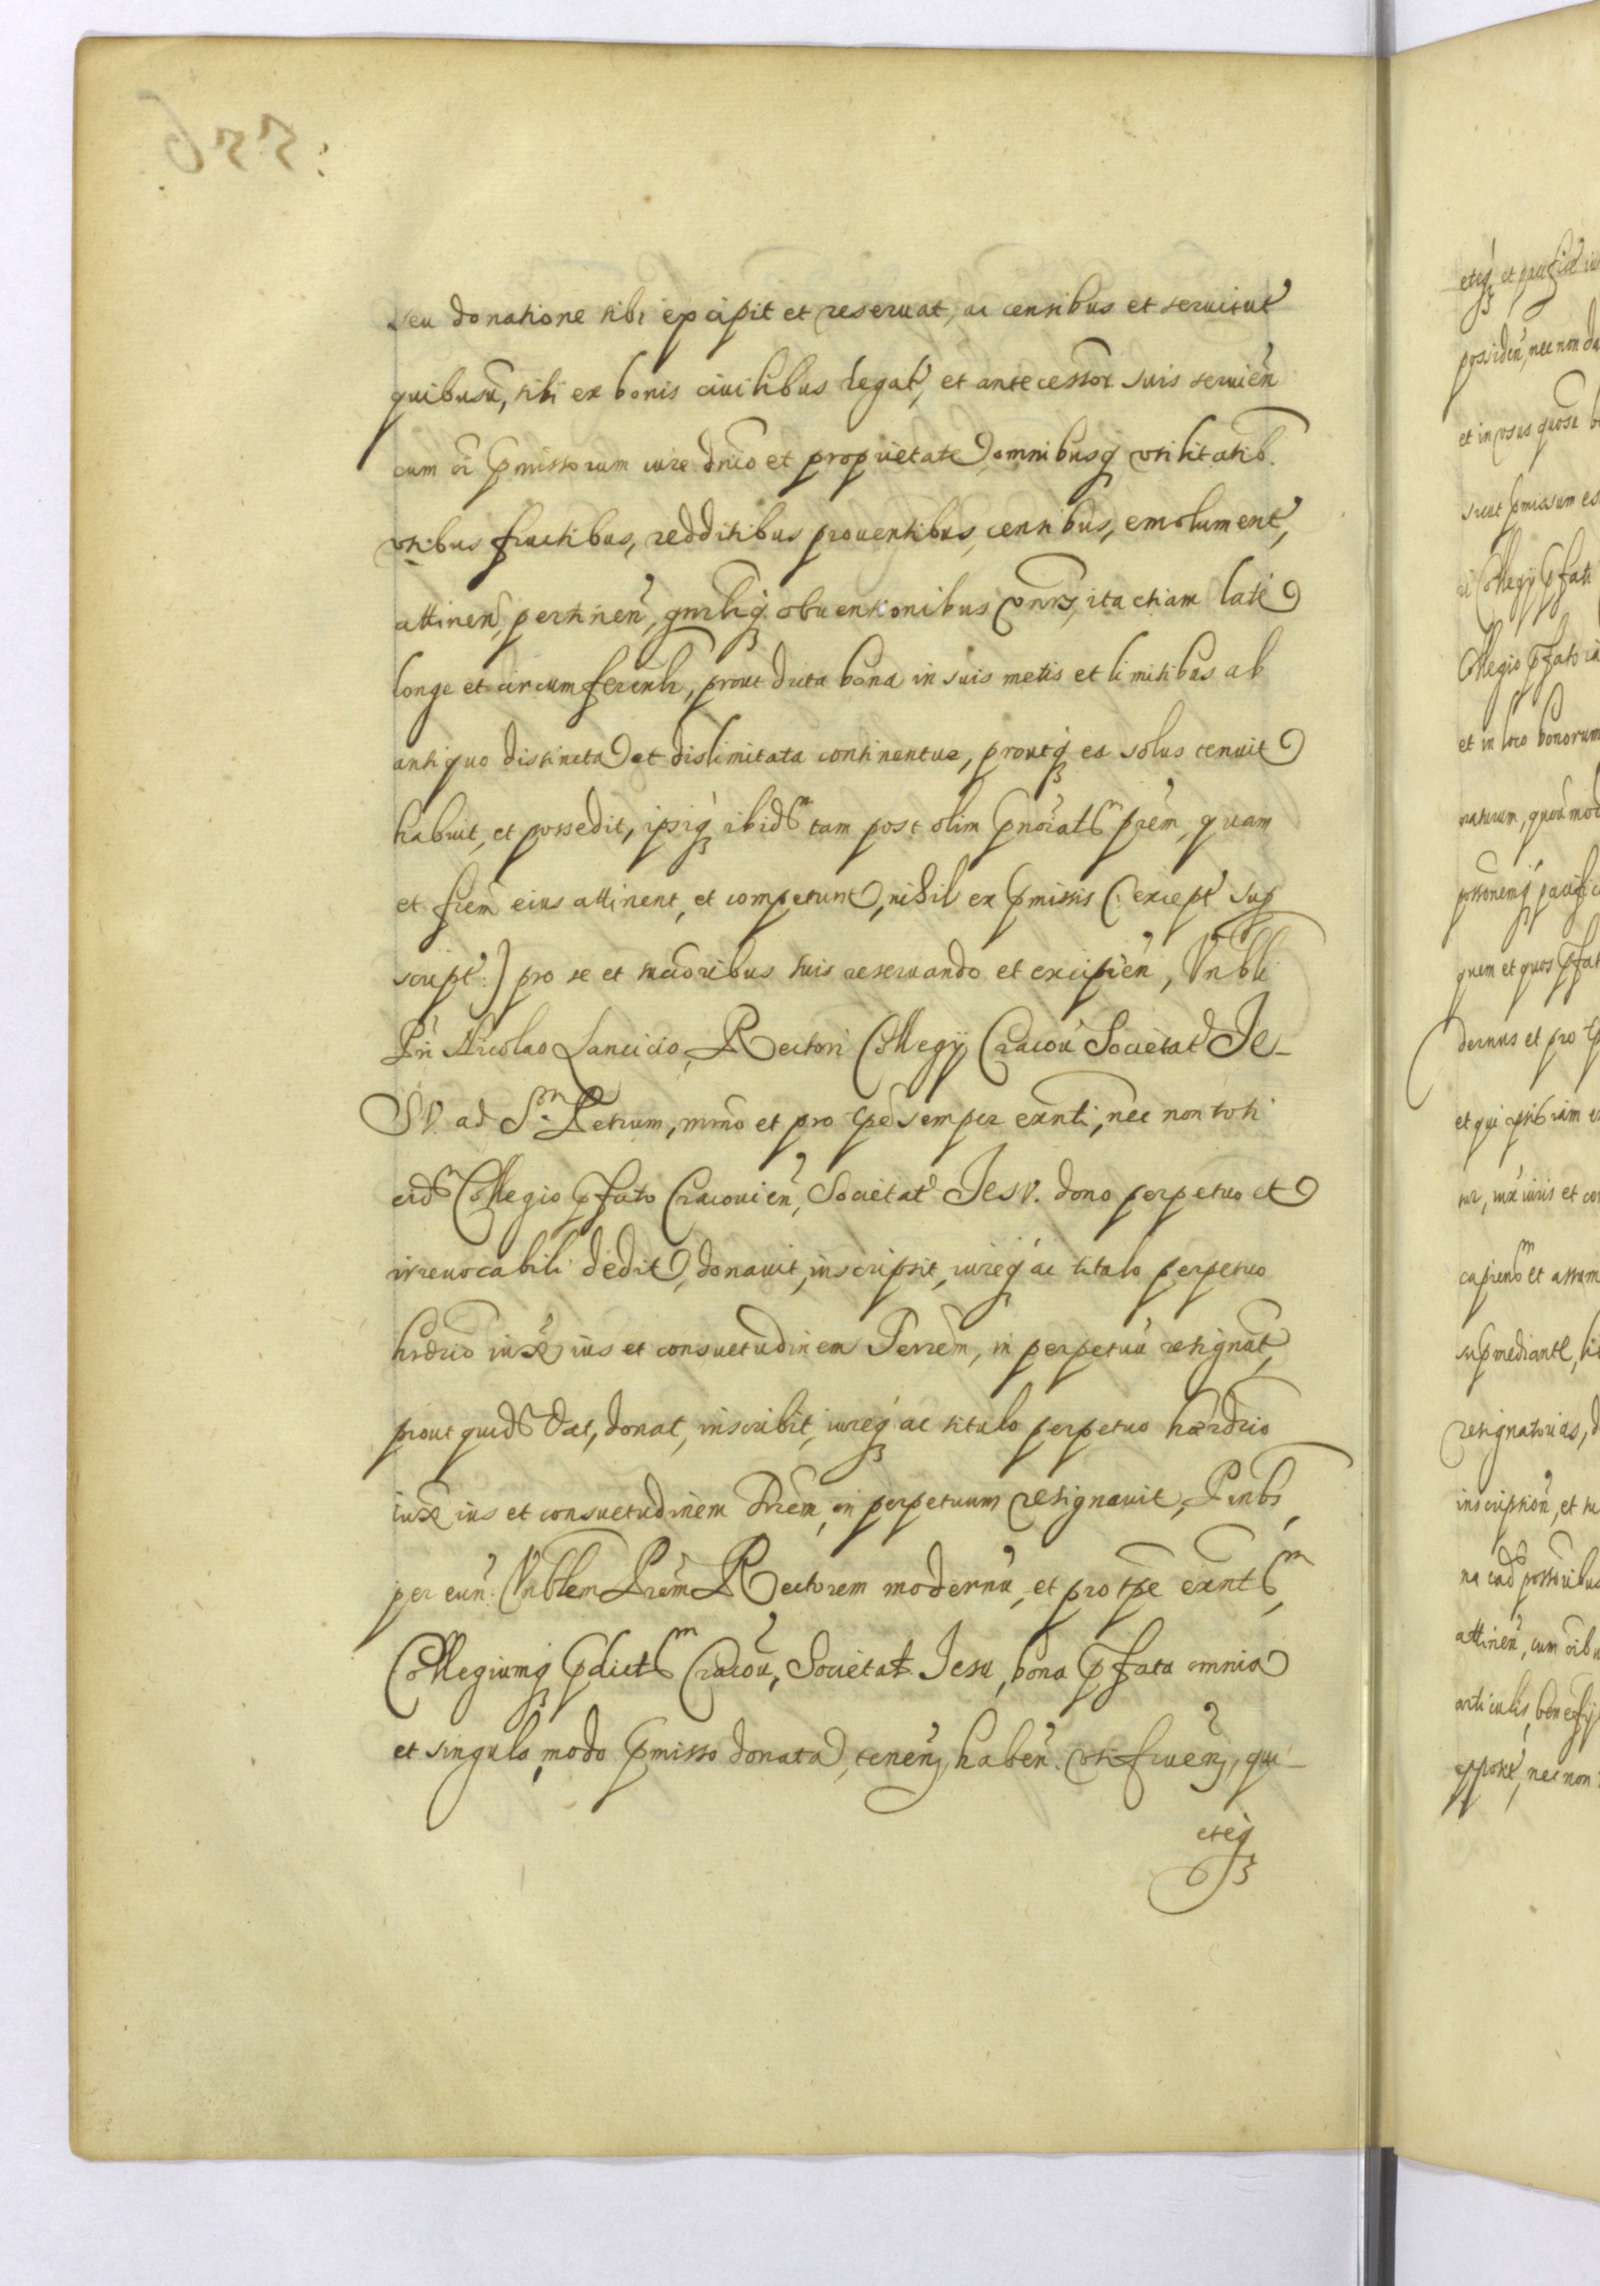 seu donatione sibi excipit et reseruat, ac censibus et seruitut
quibusu, sibi ex bonis ciuilibus legat, et antecessor suis seruien
cum oi pmissorum iure dnio et proprietate omnibusq vtilitatib.
vtibus fructibus, redditibus prouentibus, censibus, emolument,
attinen, pertinen, gnrliq obuentionibus ita etiam late
longe et circumferenlr, prout dicta bona in suis metis et limitibus ab
antiquo distincta et dislimitata continentur, proutq ea solus tenuit
habuit, et possedit, ipsiq ibidm tam post olim gnoratm prem, quam
et frem eius attinent, et competunt, nihil ex pmissis (: except sup
script :) pro se et succoribus suis reseruando et excipien, Vnbli
Pri Nicolao Lancicio, Rectori Collegij Cracou Societat Je-
SV. ad Sm. Petrum, mno et pro tpe semper exnti, nec non toti
eidm Collegio pfato Cracouien, Societat Jesv. dono perpetuo et
irreuocabili dedit, donauit, inscripsit, iureq ac titulo perpetuo
hrdrio iuxe ius et consuetudinem Terrem, in perpetuu resignat,
prout quidm dat, donat, inscribit, iureq ac titulo perpetuo hærdrio
iuxe ius et consuetudinem Trrem, in perpetuum resignauit, P
per eun. Vnblem Prem Rectorem modernu, et pro tpe exntm,
Collegiumq pdictm Cracou, Societat Jesu, bona pfata omnia
et singula, modo pmisso donata, tenen, haben. vtifruen, qui-
eteq
eteq et pacifice
possiden, nec non
et in vsus quosu
sicut pmissum es
Collegij pfati
Collegio pfato
et in loco bonorum
quou mod
pacific
quem et quos pfat
dernus et pro tp
et qui
iuris et con
capienm et assum
supmediante, li
resignatorias, d
inscription, et
na ead possoribus
attinen, cum oibu
articulis, benefij
nec non